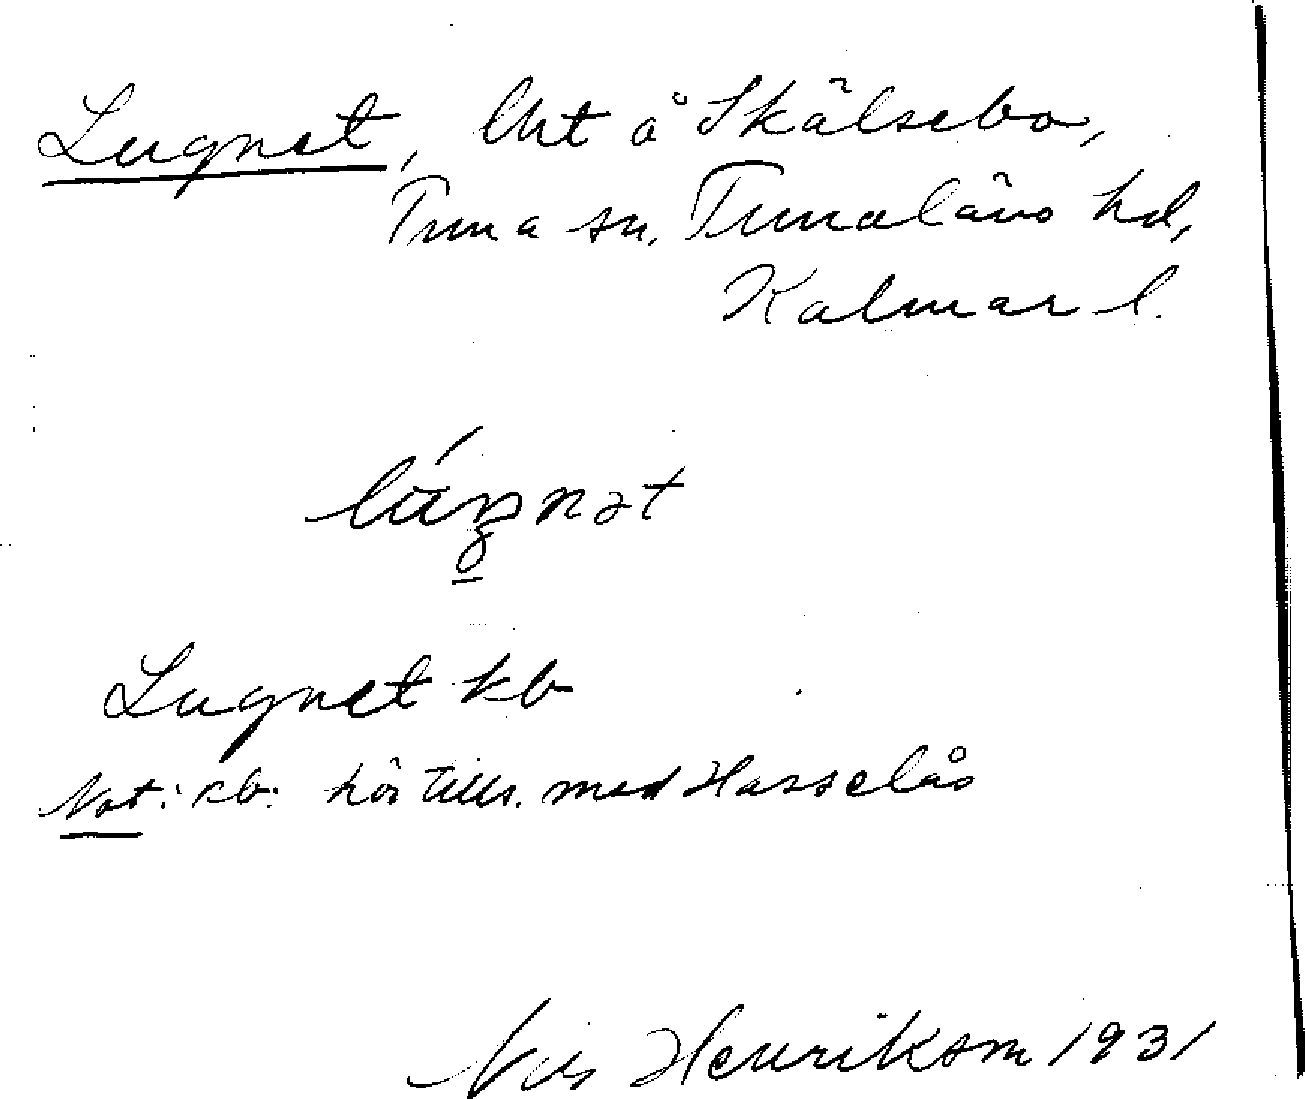 Lugnet, lht å Skälsebo,
Tuna sn, Tunaläns hd,
Kalmar l.
Lugnet kb
Not: kb: hör tills. med Hasselås
Nils Henrikson 1931